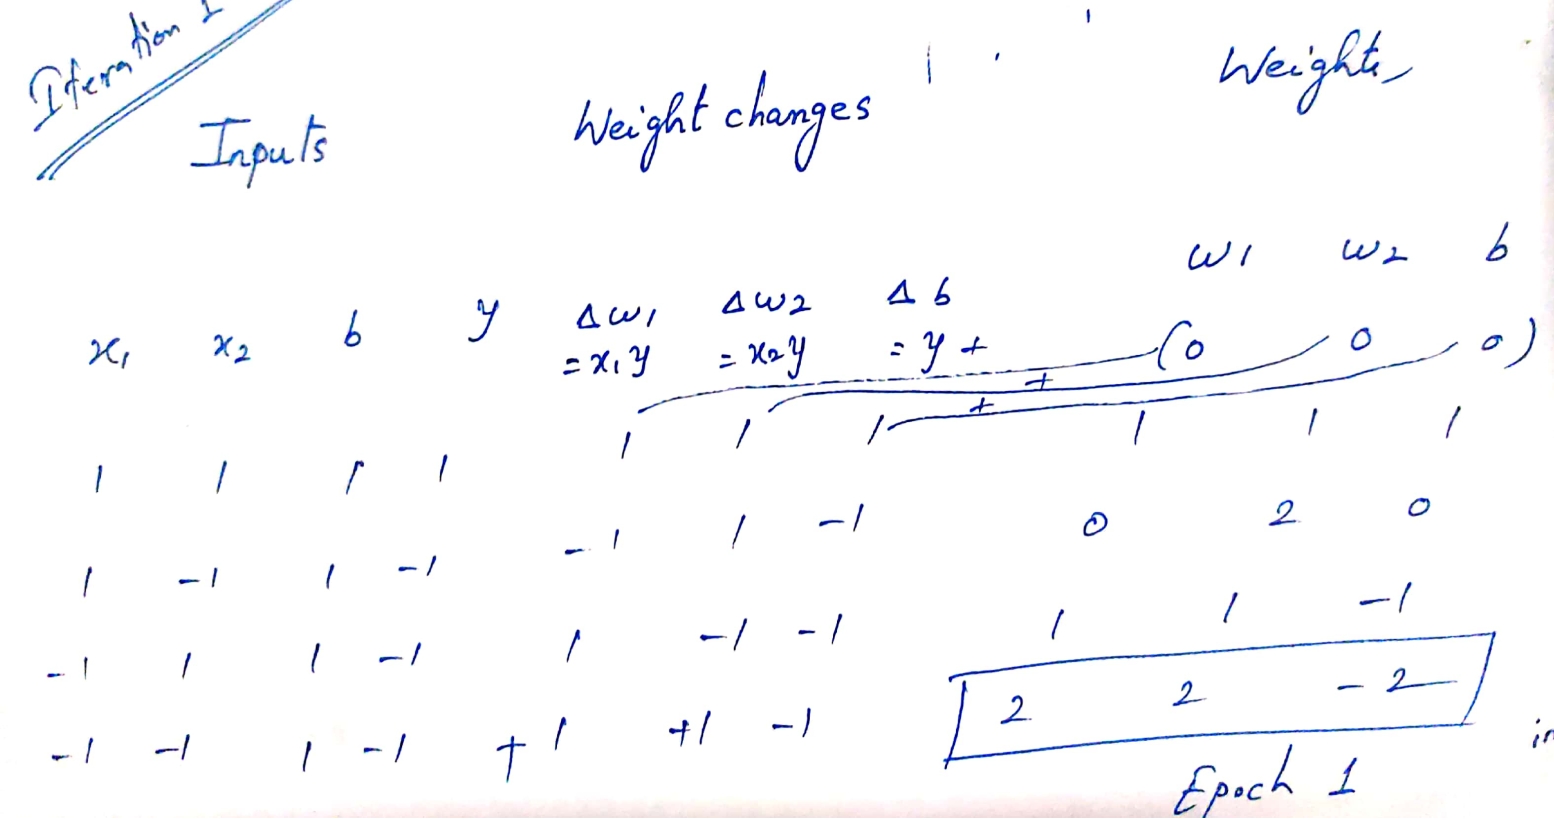 Iteration 1
Inputs Weight changes Weights
x1 x2 b y Δw1 Δw2 Δb w1 w2 b
=x1y =x2y =y + (0 0 0)
+
+
1 1 1 1 1 1 1 1 1 1
1 -1 1 -1 -1 1 -1 0 2 0
-1 1 1 -1 1 -1 -1 1 1 -1
-1 -1 1 -1 +1 +1 -1 2 2 -2
Epoch 1